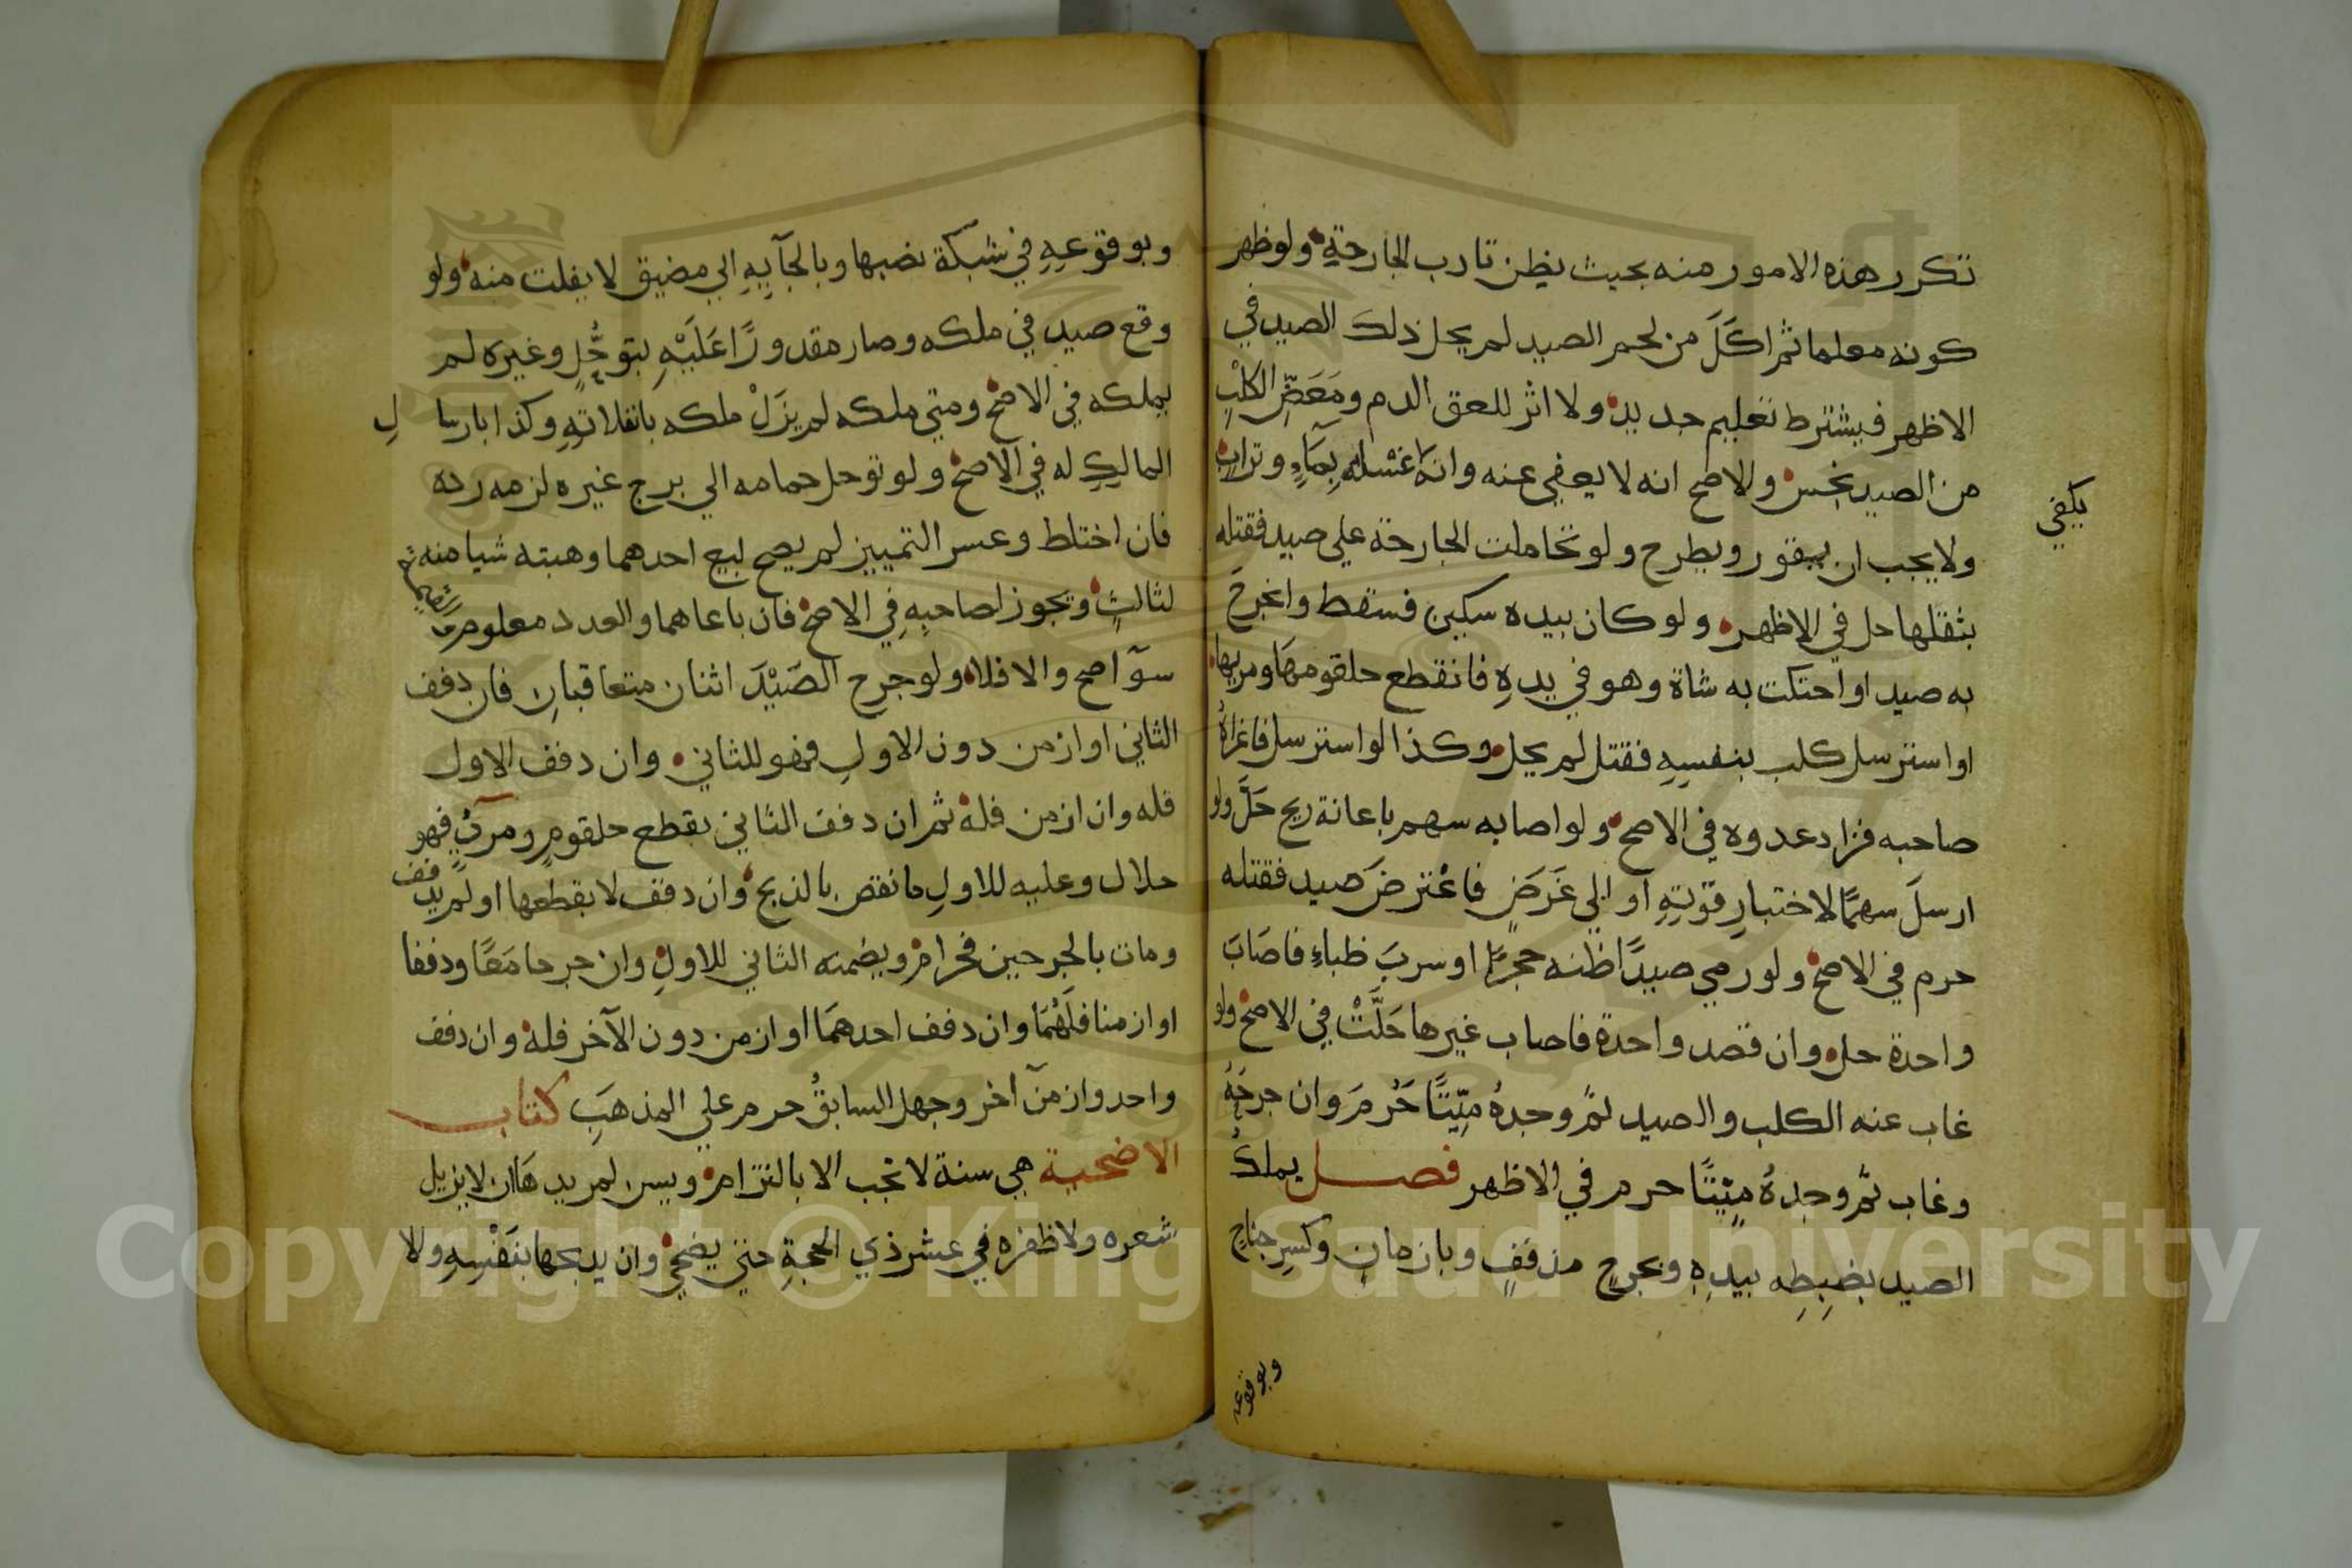 تكرر هذه الامور منه بحيث يظن تادب الجارحةِ ولو ظهر
كونه معلما ثم اكَلَ من لحم الصيد لم يحل ذلك الصيد في
الاظهر فيشترط تعليم جديد ولا اثر للعق الدم ومَعَضِّ الكلْبِ
من الصيد نجس والاصح انه لا يعفي عنه وانه غسله بِمَاءٍ وتراب
يكفي
ولا يجب ان يقور ويطرح ولو تحاملت الجارحة علي صيد فقتله
بثقلها حل في الاظهر ولو كان بيده سكين فسقط وانجرح
به صيد او احتكت به شاة وهو في يدهِ فانقطع حلقومها ومريها
او استرسل كلب بنفسِهِ فقتل لم يحل وكذا لو استرسل فاغراهُ
صاحبه فزاد عدوه في الاصح ولو اصابه سهم باعانة ريح حَلَّ ولو
ارسلَ سهمًا لاختبارِ قوّتِهِ او الي غَرَضٍ فاعْترضَ صيد فقتله
حرم في الاصح ولو رمي صيدًا ظنه حجرًا او سربَ ظباءٍ فاصَابَ
واحدة حل وان قصد واحدة فاصاب غيرها حَلَّتْ في الاصح ولو
غاب عنه الكلب والصيد ثم وجدهُ ميّتًا حَرُمَ وان جرحَهُ
وغاب ثم وجدهُ ميّتًا حرم في الاظهر فصل يملكُ
الصيد بضبطِه بيدِهِ وبجرحٍ مذففٍ وبازمانٍ وكسرِ جناحٍ
وبوقوعه
وبوقوعِهِ في شبكة نصبها وبالجآيِهِ الي مضيق لا يفلت منه ولو
وقع صيد في ملكه وصار مقدورًا عَلَيْهِ بتوحُّلٍ وغيره لم
يملكه في الاصح ومتي ملكه لم يزَلْ ملكه بانفلاتهِ وكذا بارسا لِ
المالكِ له في الآصح ولو توحل حمامه الي برج غيره لزمه رده
فان اختلط وعسر التمييز لم يصح بيع احدهما وهبته شيا منه
لثالثٍ وتجوز لصاحبِهِ في الاصح فان باعاهما والعدد معلوم والقيمة
سوآ صح والا فلا ولو جرح الصَيْدَ اثنان متعاقبانِ فان دفف
الثاني او ازمن دون الاولِ فهو للثاني وان دفف الاول
فله وان ازمن فله ثم ان دفف الثاني بقطع حلقومٍ ومرئٍ فهو
حلال وعليه للاولِ ما نقص بالذبح وان دفف لا بقطعها او لم يدفف
ومات بالجرحين فحرام ويضمنه الثاني للاولِ وان جرحا مَعًا ودففا
او ازمنا فَلَهُمَا وان دفف احدهمَا او ازمن دون الآخر فله وان دفف
واحد وازمن آخر وجهل السابقُ حرم علي المذهبَ كتاب
الاضحية هي سنة لا تجب الا بالتزام ويسن لمريدهَا ان لا يزيل
شعره ولا ظفره في عشر ذي الحجةِ حتي يضحي وان يذبحها بنَفْسِهِ والا